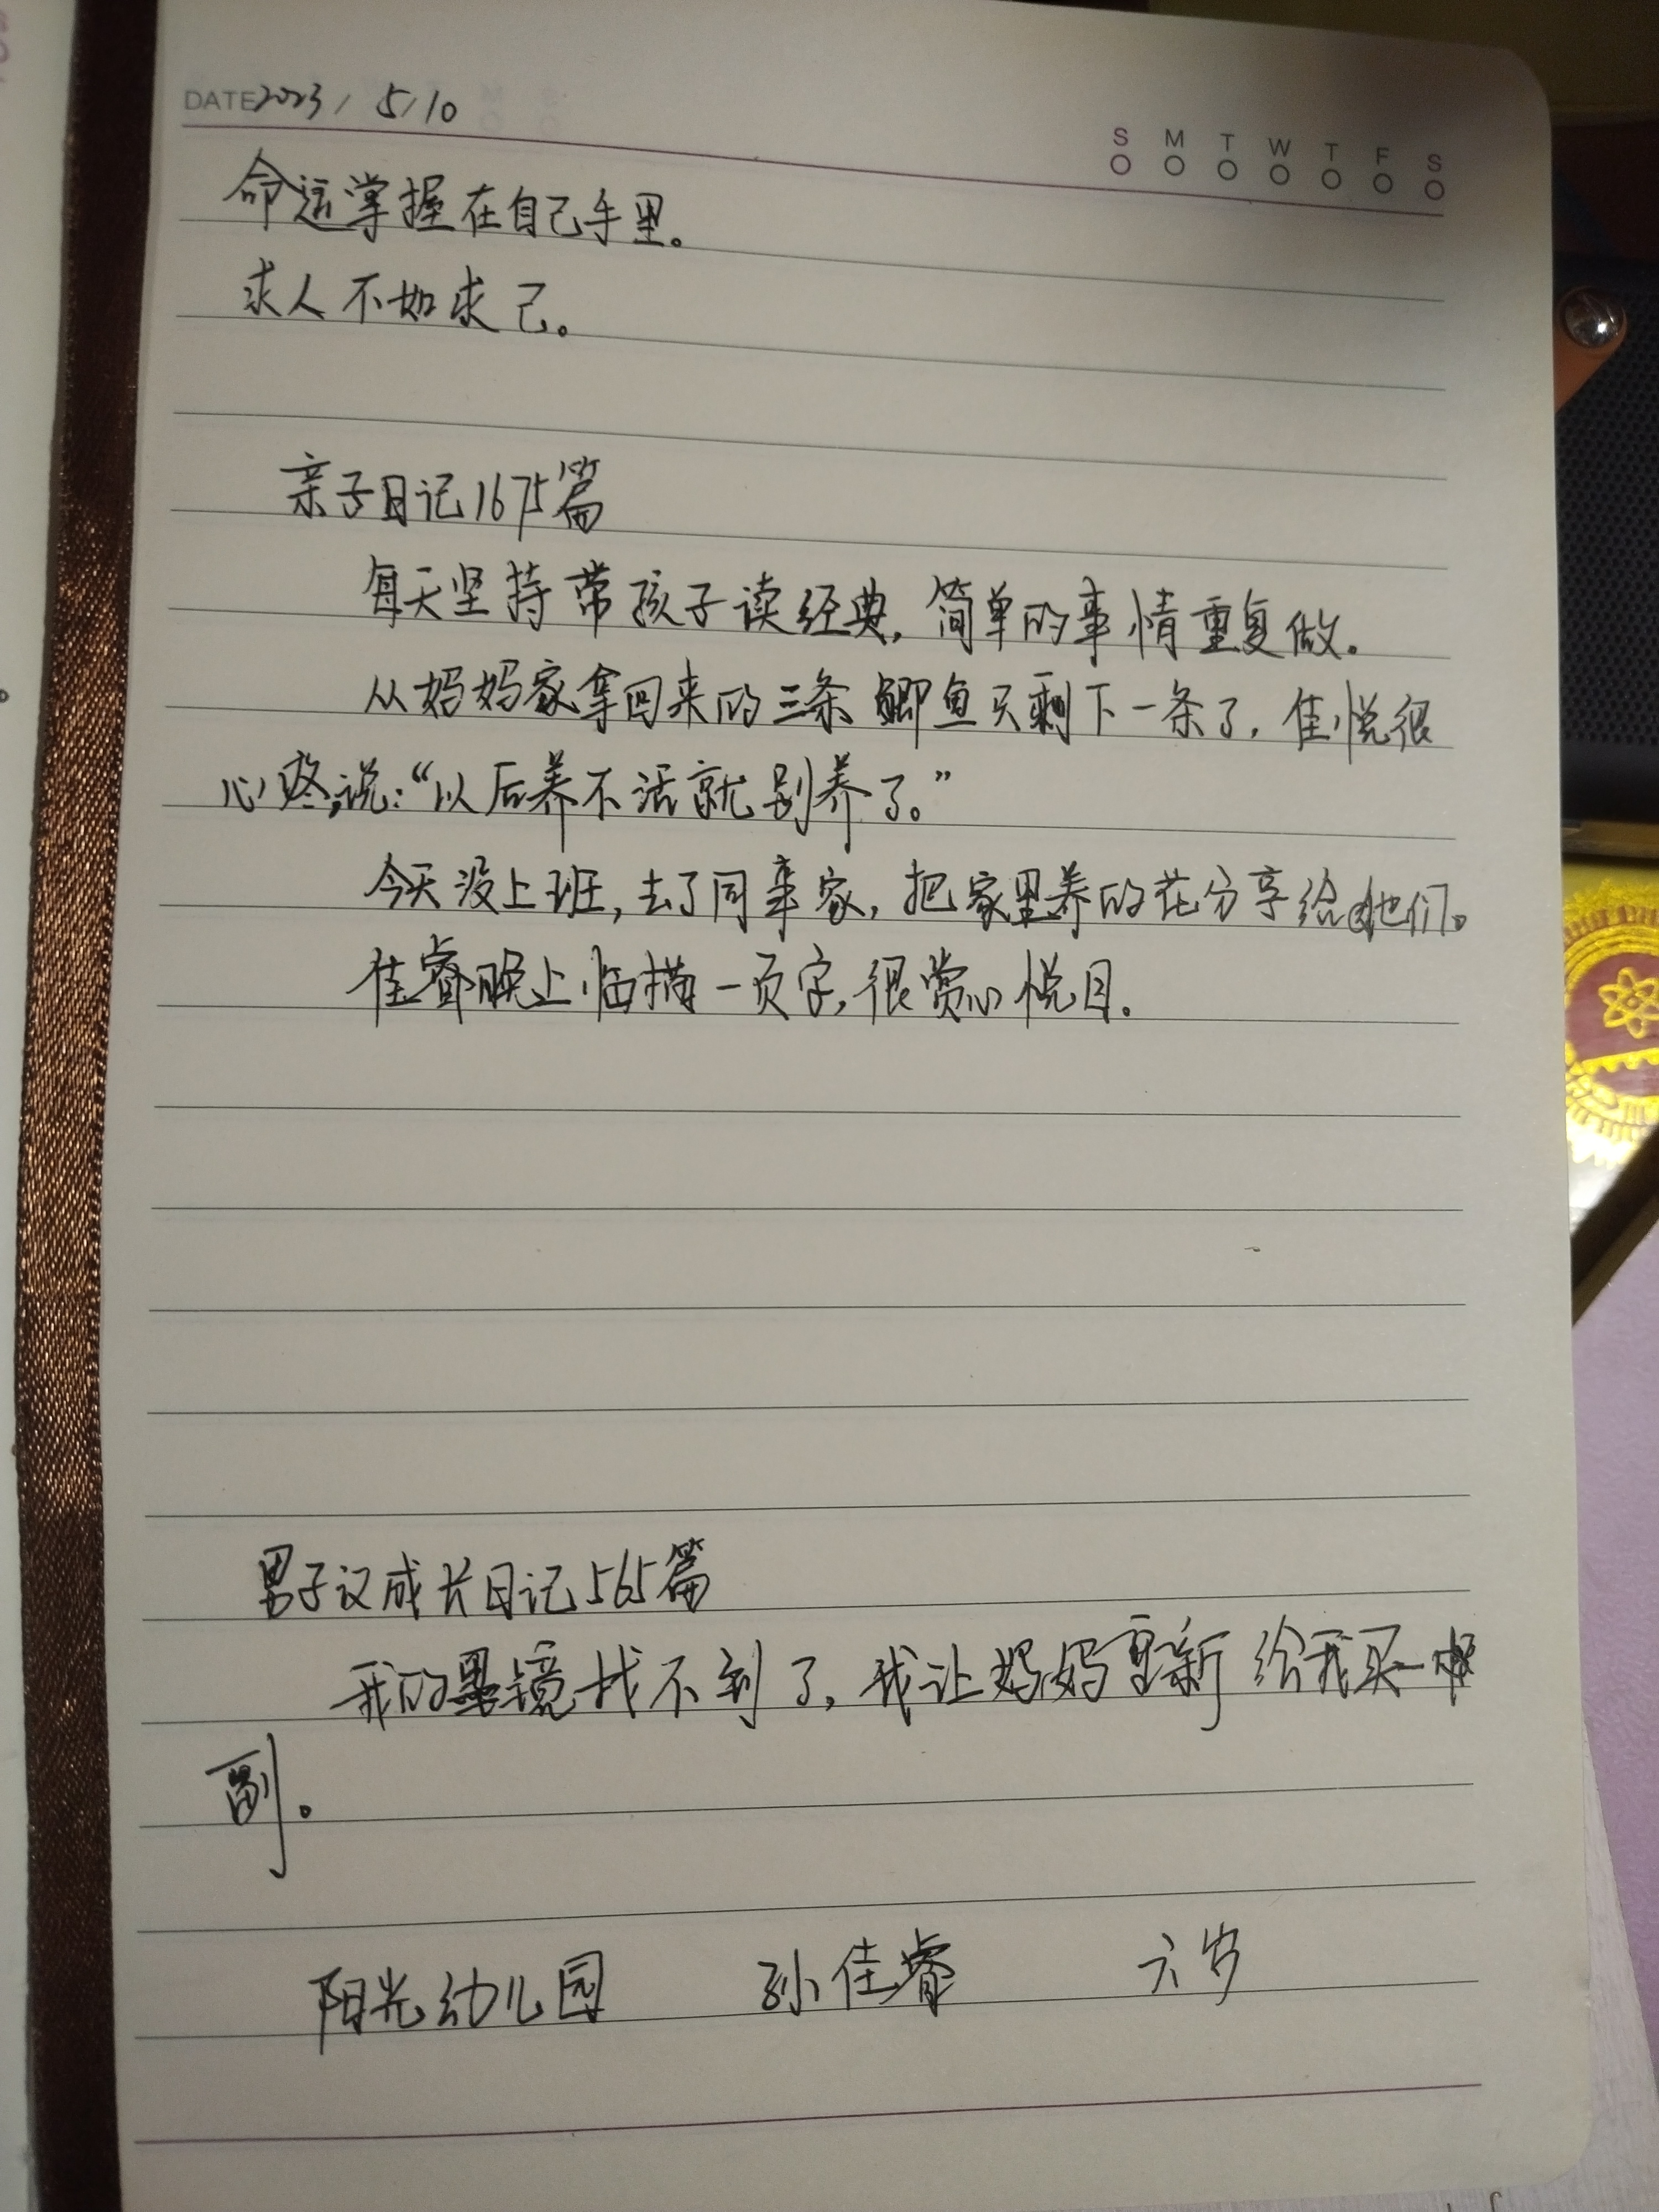 DATE 2023 / 5 / 10
S M T W T F S
命运掌握在自己手里。
求人不如求己。
亲子日记1675篇
每天坚持带孩子读经典,简单的事情重复做。
从妈妈家拿回来的三条鲫鱼只剩下一条了,佳悦很
心疼,说:“以后养不活就别养了。”
今天没上班,去了同事家,把家里养的花分享给她们。
佳睿晚上临摹一页字,很赏心悦目。
男子汉成长日记565篇
我的墨镜找不到了,我让妈妈重新给我买一
副。
阳光幼儿园 孙佳睿 六岁